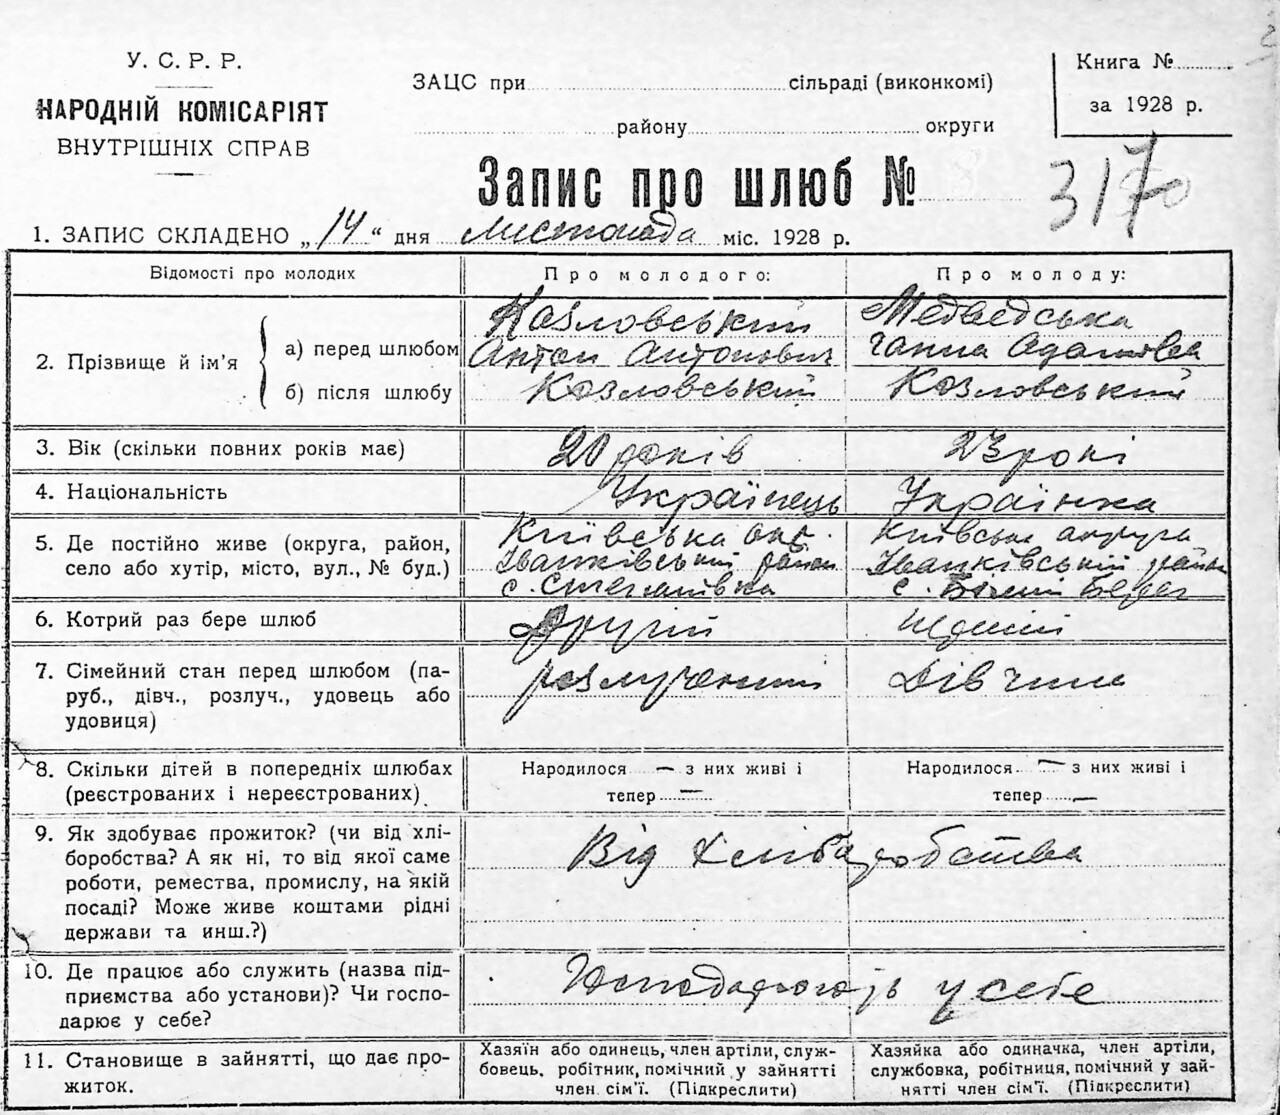 У. С. Р. Р.
НАРОДНІЙ КОМІСАРІЯТ
ВНУТРІШНІХ СПРАВ
ЗАЦС при сільраді (виконкомі)
району округи
Книга №
за 1928 р.
Запис про шлюб №
317
1. ЗАПИС СКЛАДЕНО „14“ дня листопада міс. 1928 р.
Відомості про молодих
Про молодого:
Про молоду:
2. Прізвище й ім'я
а) перед шлюбом
Козловський
Антон Антонович
Медведська
Ганна Адамовна
б) після шлюбу
Козловський
Козловський
3. Вік (скільки повних років має)
20 років
23 рокі
4. Національність
Українець
Українка
5. Де постійно живе (округа, район,
село або хутір, місто, вул., № буд.)
Київська окг.
Іванківський район
с. Степанівка
Київська округа
Іванківський район
с. Білий Берег
6. Котрий раз бере шлюб
Другій
7. Сімейний стан перед шлюбом (па-
руб., дівч., розлуч., удовець або
удовиця)
розлучений
Дівчина
8. Скільки дітей в попередніх шлюбах
(реєстрованих і нереєстрованих)
Народилося — з них живі і
тепер —
Народилося — з них живі і
тепер —
9. Як здобуває прожиток? (чи від хлі-
боробства? А як ні, то від якої саме
роботи, ремества, промислу, на якій
посаді? Може живе коштами рідні
держави та инш.?)
Від хлібаробства
10. Де працює або служить (назва під-
приємства або установи)? Чи госпо-
дарює у себе?
у себе
11. Становище в зайнятті, що дає про-
житок.
Хазяїн або одинець, член артіли, служ-
бовець, робітник, помічний у зайнятті
член сім'ї. (Підкреслити)
Хазяйка або одиначка, член артіли,
службовка, робітниця, помічний у зай-
нятті член сім'ї. (Підкреслити)